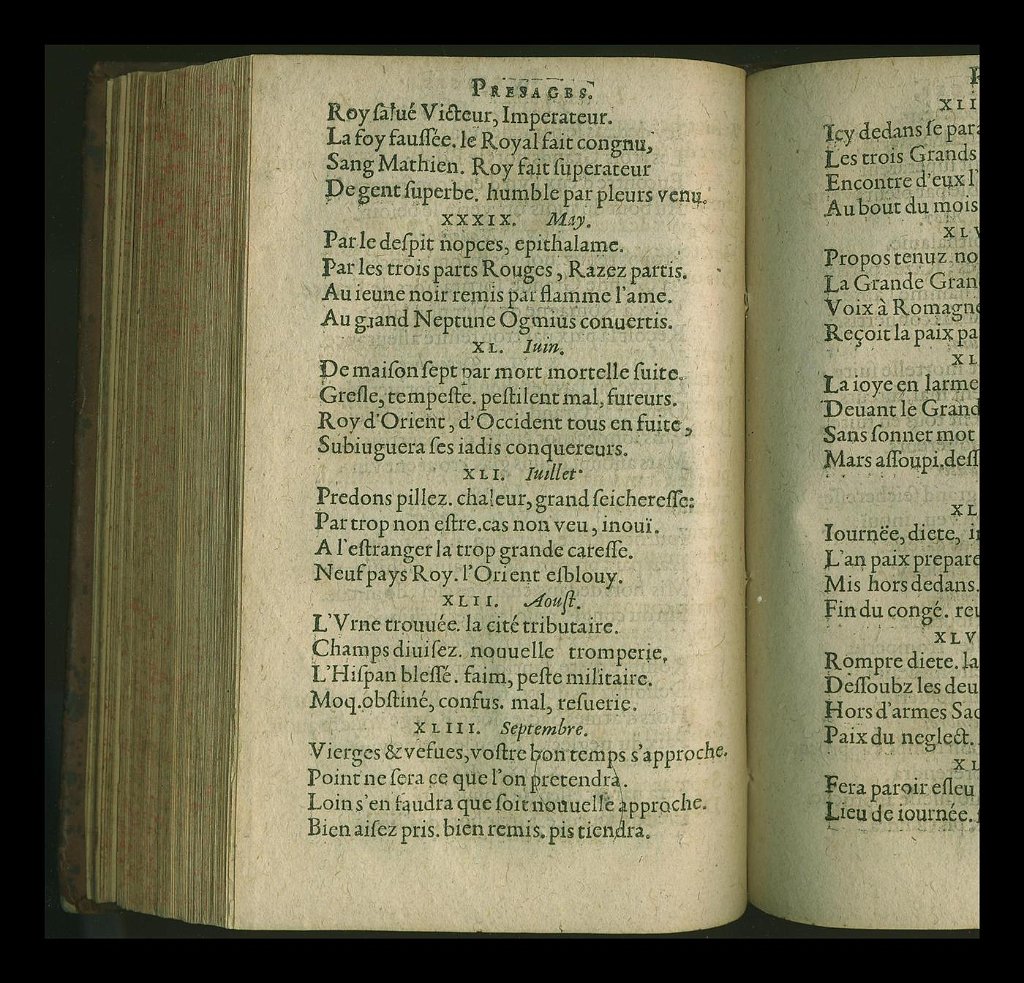 PRESAGES.
Roy ſalué Victeur, Imperateur.
La foy fauſſée. le Royal fait congnu,
Sang Mathien. Roy fait ſuperateur
De gent ſuperbe. humble par pleurs venu.
XXXIX. May.
Par le deſpit nopces, epithalame.
Par les trois parts Rouges, Razez partis.
Au ieune noir remis par flamme l'ame.
Au grand Neptune Ogmius conuertis.
XL. Iuin.
De maiſon ſept par mort mortelle ſuite.
Greſle, tempeſte. peſtilent mal, fureurs.
Roy d'Orient, d'Occident tous en fuite,
Subiuguera ſes iadis conquereurs.
XLI. Iuillet
Predons pillez. chaleur, grand ſeichereſſe:
Par trop non eſtre. cas non veu, inouï.
A l'eſtranger la trop grande careſſe.
Neuf pays Roy. l'Orient eſblouy.
XLII. Aouſt.
L'Vrne trouuée. la cité tributaire.
Champs diuiſez. nouuelle tromperie,
L'Hiſpan bleſſé. faim, peſte militaire.
Moq. obſtiné, confus. mal, reſuerie.
XLIII. Septembre.
Vierges & vefues, voſtre bon temps s'approche.
Point ne ſera ce que l'on pretendra.
Loin s'en faudra que ſoit nouuelle approche.
Bien aiſez pris. bien remis. pis tiendra.
XLI
Icy dedans ſe para
Les trois Grands
Encontre d'eux l'
Au bout du mois
XLV
Propos tenuz no
La Grande Gran
Voix à Romagne
Reçoit la paix pa
XL
La ioye en larme
Deuant le Grand
Sans ſonner mot
Mars aſſoupi. deſſ
XL
Iournëe, diete, i
L'an paix prepare
Mis hors dedans.
Fin du congé. reu
XLV
Rompre diete. la
Deſſoubz les deu
Hors d'armes Sac
Paix du neglect.
XL
Fera paroir eſleu
Lieu de iournée.